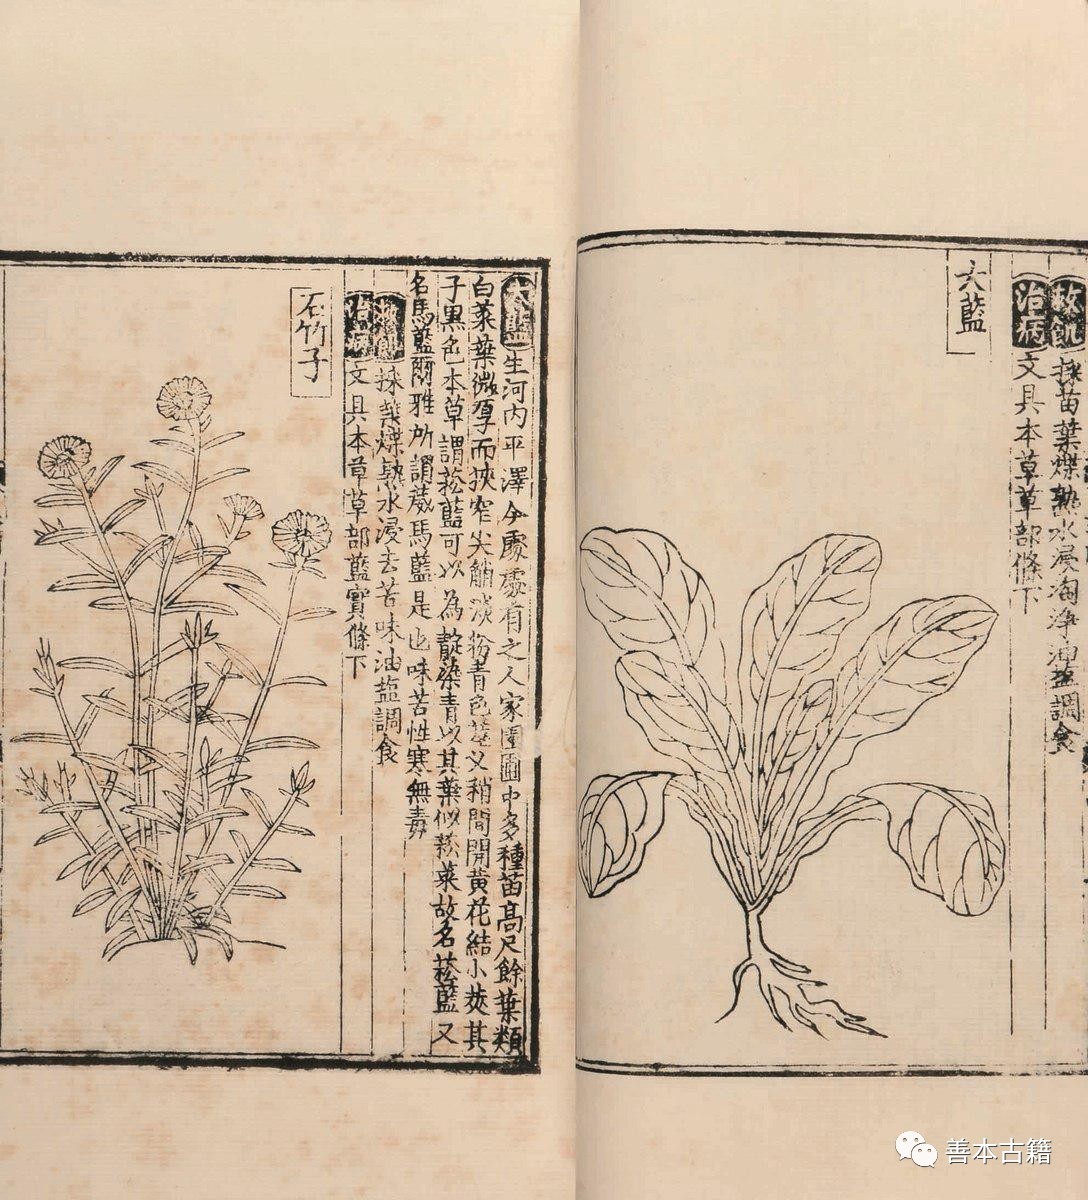 救飢採苗葉煠熟水浸淘淨油鹽調食
治病文具本草草部條下
大藍
大藍生河內平澤今處處有之人家園圃中多種苗高尺餘葉類
白菜葉微厚而狹窄尖艄淡粉青色莖叉稍間開黃花結小莢其
子黑色本草謂菘藍可以為靛染青以其葉似菘菜故名菘藍又
名馬藍爾雅所謂葴馬藍是也味苦性寒無毒
救飢採葉煠熟水浸去苦味油鹽調食
治病文具本草草部藍實條下
石竹子
善本古籍